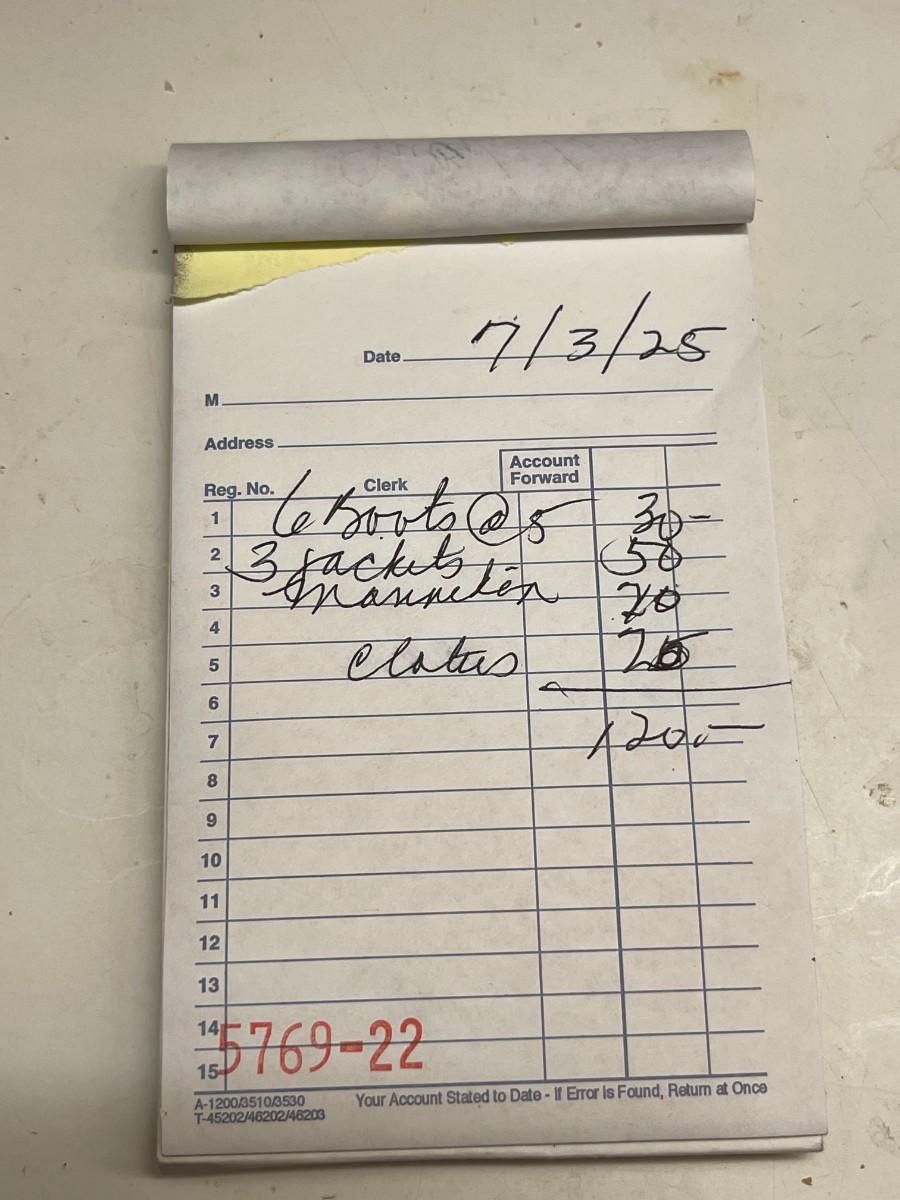 Date 7/3/25
M
Address
Account Forward
Reg. No. Clerk
1 6 Boots @ 5 30-
2 3 Jackets 50
3 Mannekin 20
4
5 Clothes
6
7 120.-
8
9
10
11
12
13
14
15
5769-22
A-1200/3510/3530
T-45202/46202/46203
Your Account Stated to Date - If Error is Found, Return at Once